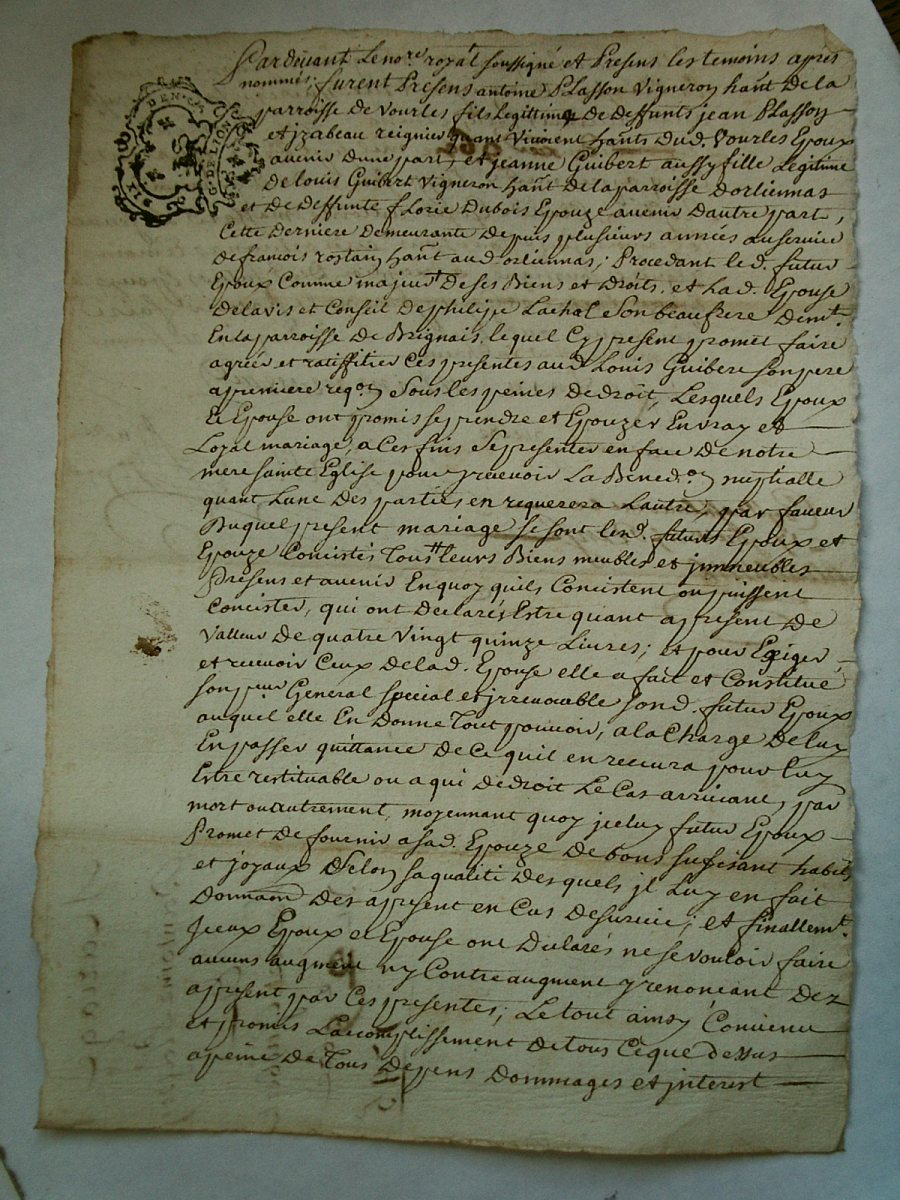 Pardevant Le no.re royal soussigné et Presens les temoins apres
nommés; furent Presens antoine Plasson Vigneron hant de la
parroisse de Vourles fils Legittime de deffunts jean Plasson
et jzabeau reignier quant vivoient hants dud. Vourles Epoux
avenir dune part, et jeanne Guibert aussy fille Legitime
de Louis Guibert Vigneron hant de la parroisse dorliennas
et de deffunte florie Dubois Epouze avenir dautre part,
Cette derniere demeurante depuis plusieurs années au service
de francois rostain hant aud. orliennas; Procedant led. futur
Epoux Comme majeur de ses Biens et droits. et Lad. Epouse
de lavis et Conseil de philipe Lachal son beaufrere demt.
En la parroisse de Brignais, lequel Cy present promet faire
agréer et ratiffier Ces presentes aud. Louis Guibert son pere
a premiere reqon. sous les peines de droit, Lesquels Epoux
Et Epouse ont promis se prendre et Epouzer En vray et
Loyal mariage, a Ces fins se presenter en face de notre
mere sainte Eglise pour y recevoir La Bened.on nuptialle
quant Lune des parties en requerera Lautre, par faveur
Duquel present mariage se sont lesd. futurs Epoux et
Epouze Concistés Tous leurs Biens meubles et jmmeubles
Présens et avenir En quoy quils Concistent ou puissent
Concister, qui ont declarés Estre quant a present de
Valleur de quatre Vingt quinze Livres; et pour Exiger
et recevoir Ceux de lad. Epouse elle a fait et Constitué
son peur General special et jrrevocable sond. futur Epoux
auquel elle En donne Tout pouvoir, a la Charge de luy
En passer quittance de Ce quil en recevra pour luy
Estre restituable ou a qui de droit Le Cas arrivant, par
mort ou autrement, moyennant quoy jceluy futur Epoux
Promet de fournir a sad. Epouze de bons sufisant habits
et joyaux selon sa qualité des quels jl Luy en fait
donnaon des apresent en Cas de survie; et finallemt.
jceux Epoux et Epouse ont declarés ne se vouloir faire
aucuns augment ny Contreaugment y renoncant dez
apresent par Ces presentes; Le tout ainsy Convenu
et promis Laccomplissement de tous Ceque dessus
a peine de Tous depens dommages et jnterest